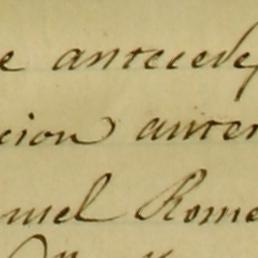 e antecede
cion anter
nuel Rome